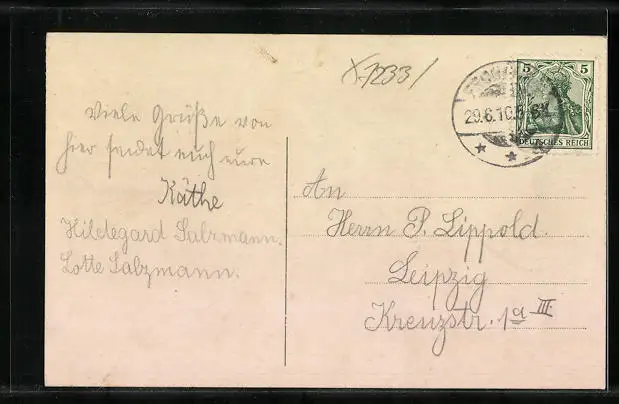 X1233/
29.6.10.
5 5
DEUTSCHES REICH
Viele Grüße von
hier sendet euch eure
Käthe
Hildegard Salzmann.
Lotte Salzmann.
An
Herrn P. Lippold.
Leipzig
Kreuzstr. 1a III.